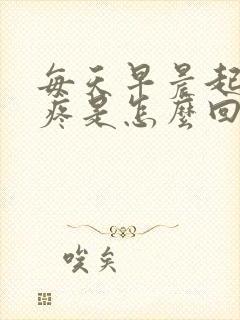 每天早晨起
疼是怎麼回
唉矣